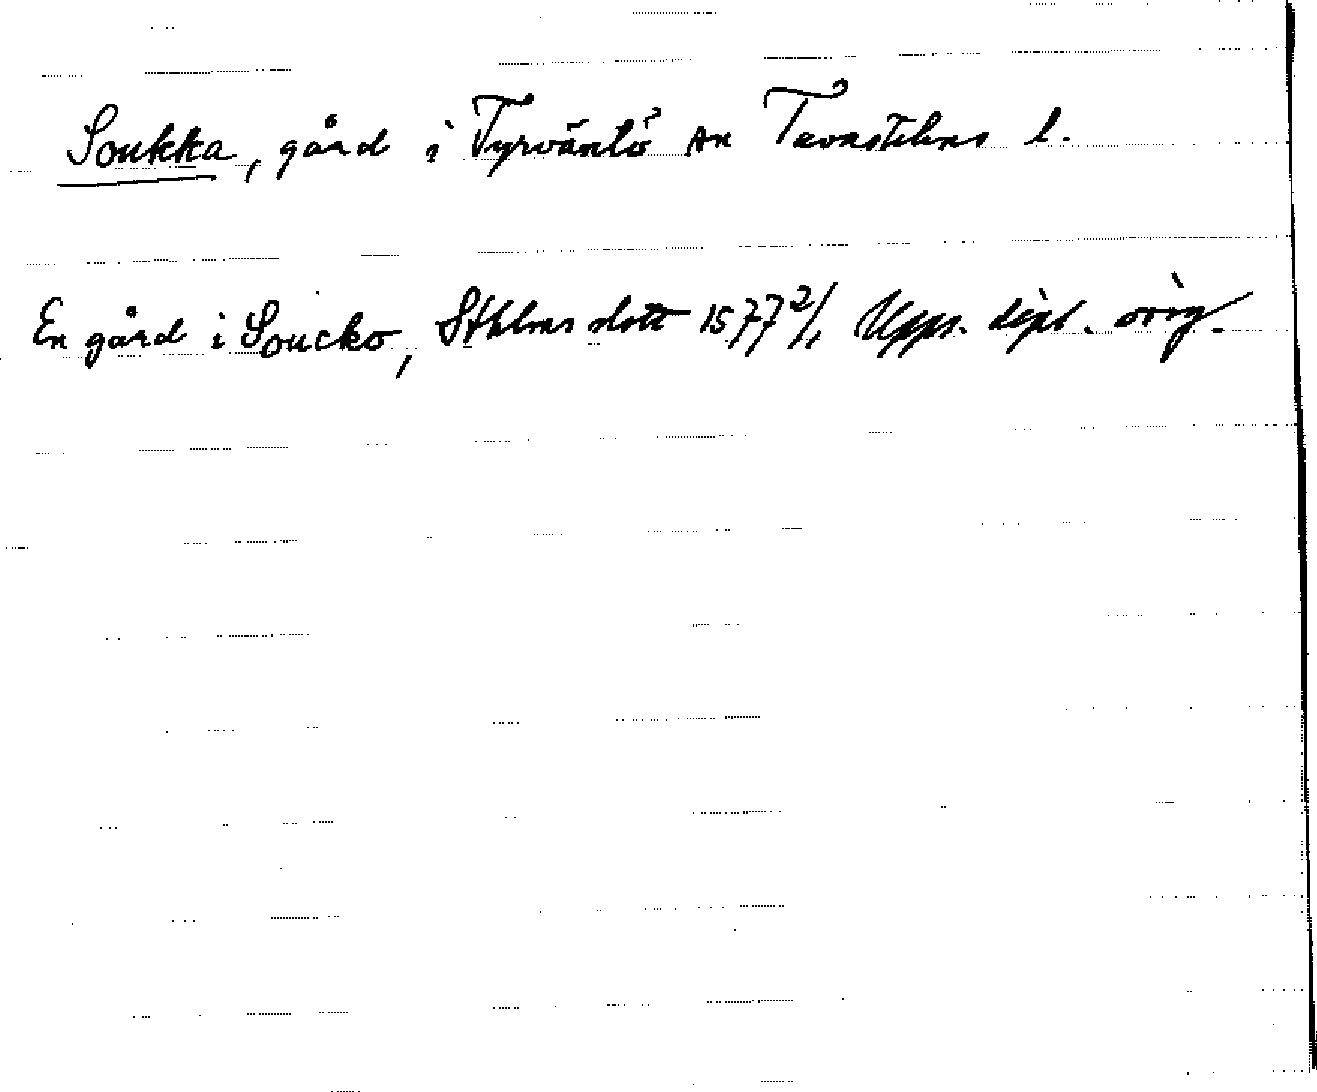 Soukka, gård i Tyrväntö sn Tavastehus l.
En gård i Soucko, Sthlms slott 1577 2/1 Upps. dipl. orig.